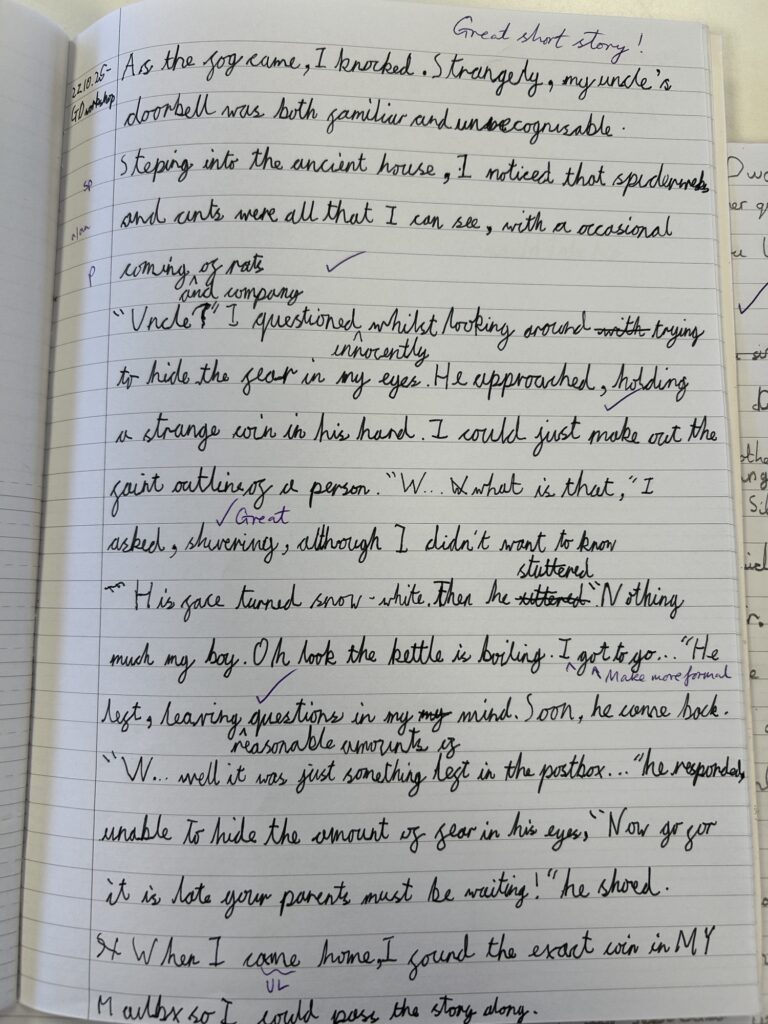 Great short story!
22.10.25
GD workshop
As the fog came, I knocked. Strangely, my uncle's
doorbell was both familiar and unrecognisable.
Steping into the ancient house, I noticed that spiderwebs
sp
and ants were all that I can see, with a occasional
a/an
coming of rats
and company
p
"Uncle?" I questioned whilst looking around with trying
innocently
to hide the fear in my eyes. He approached, holding
a strange coin in his hand. I could just make out the
faint outline of a person. "W... what is that," I
Great
asked, shivering, although I didn't want to know
stuttered
His face turned snow-white. Then he "Nothing
much my boy. Oh look the kettle is boiling. I got to go..." He
Make more formal
left, leaving questions in my my mind. Soon, he came back.
reasonable amounts of
"W... well it was just something left in the postbox..." he responded,
unable to hide the amount of fear in his eyes, "Now go for
it is late your parents must be waiting!" he shoed.
When I came home, I found the exact coin in MY
VL
Mailbx so I could pass the story along.